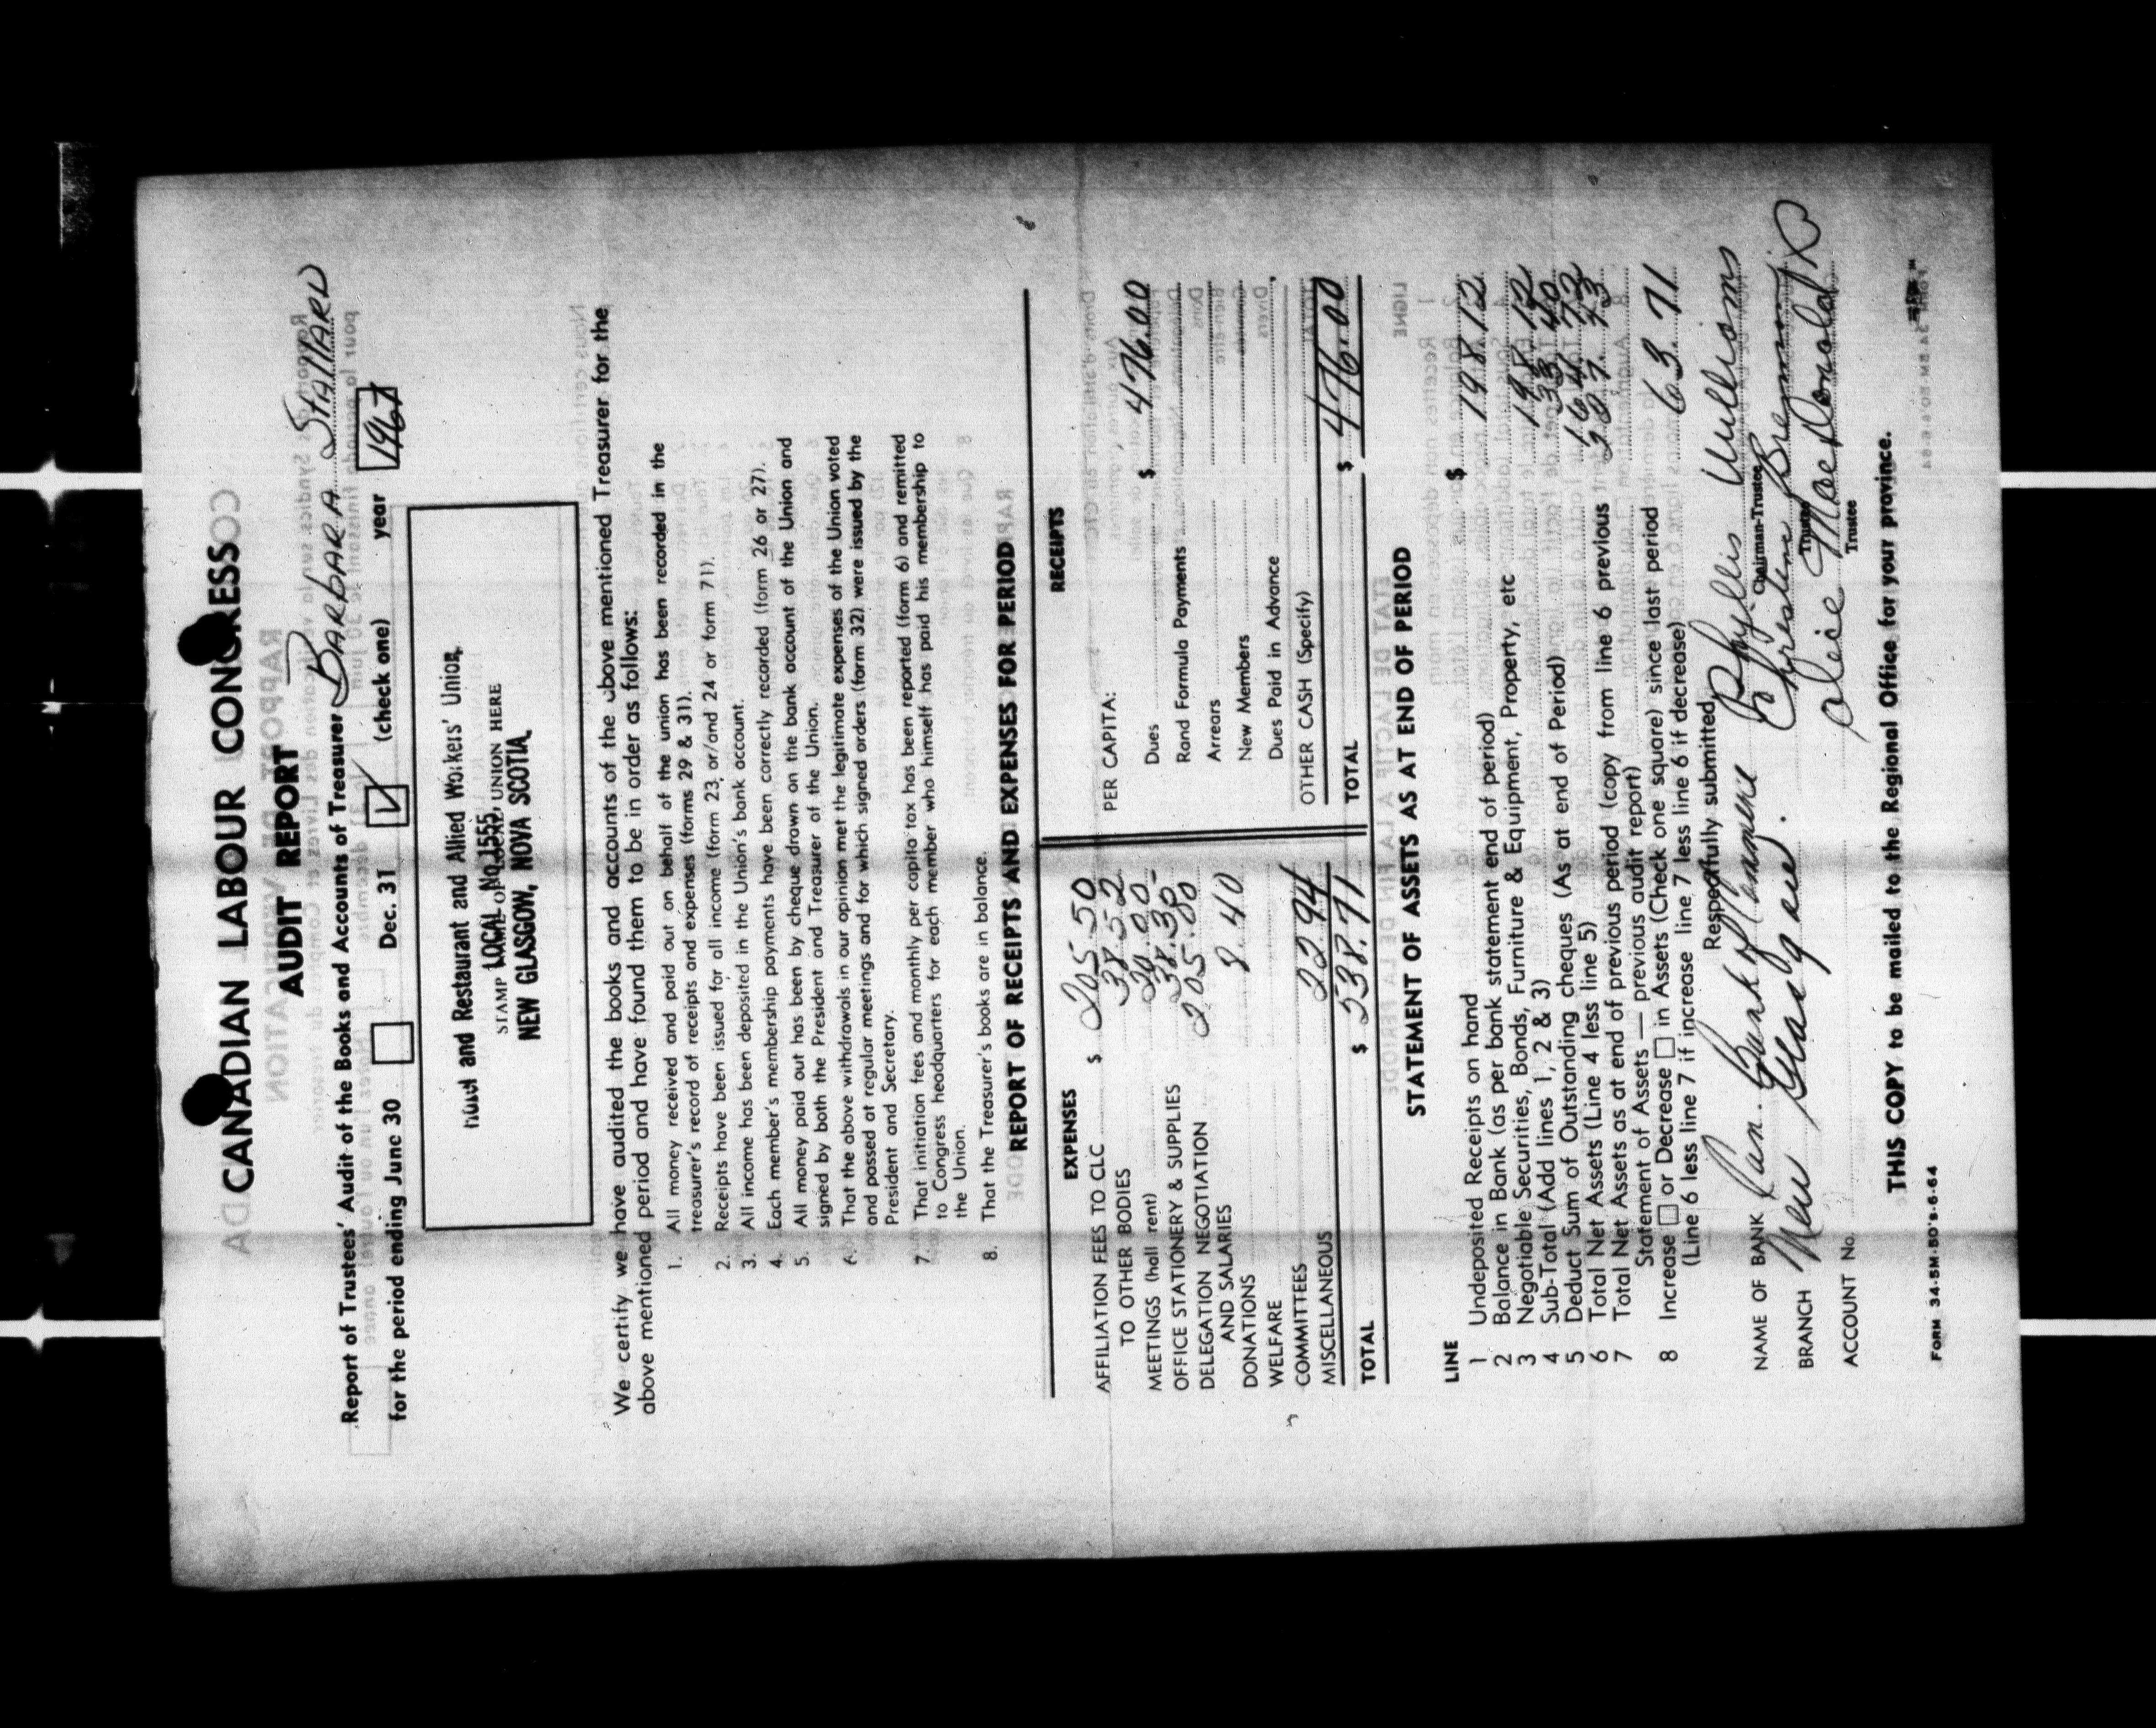 CANADIAN LABOUR CONGRESS
AUDIT REPORT
Report of Trustees' Audit of the Books and Accounts of Treasurer BARBARA STALLARD
for the period ending June 30 Dec. 31 (check one) year 1967
and Restaurant and Allied Workers' Union,
LOCAL No. 1555,
STAMP LOCAL UNION HERE
NEW GLASGOW, NOVA SCOTIA.
We certify we have audited the books and accounts of the above mentioned Treasurer for the
above mentioned period and have found them to be in order as follows:
1. All money received and paid out on behalf of the union has been recorded in the
treasurer's record of receipts and expenses (forms 29 & 31).
2. Receipts have been issued for all income (form 23, or/and 24 or form 71).
3. All income has been deposited in the Union's bank account.
4. Each member's membership payments have been correctly recorded (form 26 or 27).
5. All money paid out has been by cheque drawn on the bank account of the Union and
signed by both the President and Treasurer of the Union.
6. That the above withdrawals in our opinion met the legitimate expenses of the Union voted
and passed at regular meetings and for which signed orders (form 32) were issued by the
President and Secretary.
7. That initiation fees and monthly per capita tax has been reported (form 6) and remitted
to Congress headquarters for each member who himself has paid his membership to
the Union.
8. That the Treasurer's books are in balance.
REPORT OF RECEIPTS AND EXPENSES FOR PERIOD
EXPENSES
AFFILIATION FEES TO CLC $ 205.50
TO OTHER BODIES 38.52
MEETINGS (hall rent) 20.00
OFFICE STATIONERY & SUPPLIES 38.35
DELEGATION NEGOTIATION 205.00
AND SALARIES
DONATIONS 8.40
WELFARE
COMMITTEES
MISCELLANEOUS 22.94
TOTAL $ 538.71
RECEIPTS
PER CAPITA:
Dues $ 476.00
Rand Formula Payments
Arrears
New Members
Dues Paid in Advance
OTHER CASH (Specify)
TOTAL $ 476.00
STATEMENT OF ASSETS AS AT END OF PERIOD
LINE
1 Undeposited Receipts on hand $
2 Balance in Bank (as per bank statement end of period) 198.12
3 Negotiable Securities, Bonds, Furniture & Equipment, Property, etc
4 Sub-Total (Add lines 1, 2 & 3) 198.12
5 Deduct Sum of Outstanding cheques (As at end of Period) 33.40
6 Total Net Assets (Line 4 less line 5) 164.72
7 Total Net Assets as at end of previous period (copy from line 6 previous
Statement of Assets — previous audit report)
8 Increase or Decrease in Assets (Check one square) since last period 63.71
(Line 6 less line 7 if increase line 7 less line 6 if decrease)
Respectfully submitted,
Phyllis Williams
Chairman-Trustee
NAME OF BANK Can. Bank of Commerce
Christene
Trustee
BRANCH New Glasgow.
Alice MacDonald
Trustee
ACCOUNT No.
THIS COPY to be mailed to the Regional Office for your province.
FORM 34-5M-50's-6-64